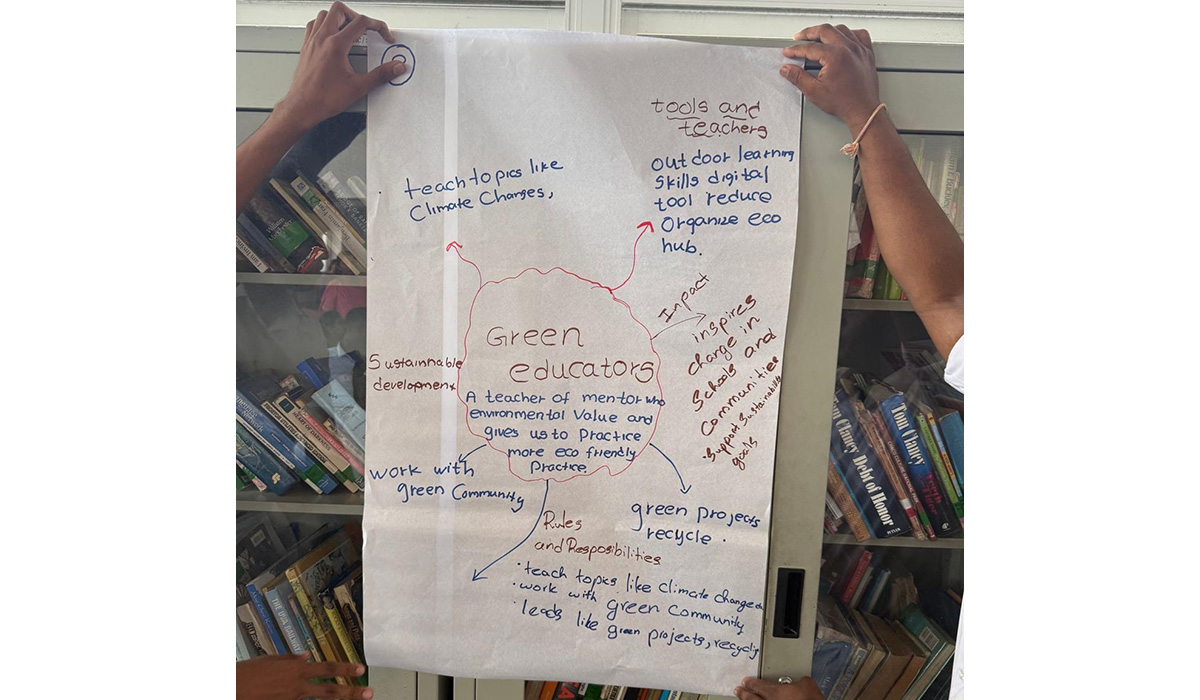 2
tools and
teachers
outdoor learning
skills digital
tool reduce
Organize eco
hub.
teach topics like
Climate Changes,
Inpact
inspires
change in
Schools and
Communities
· Support Sustainability
goals
Green
educators
A teacher of mentor who
environmental Value and
gives us to Practice
more eco friendly
Practice.
Sustainnable
development
work with
green Community
green projects
recycle .
Rules
and Resposibilities
· teach topics like climate change
· work with green community
· leads like green projects, recyclig
Tom Clancy Debt of Honor
Tom Clancy